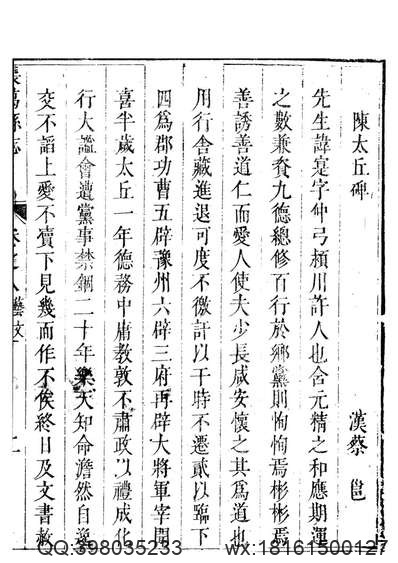 陳太丘碑　漢蔡邕
先生諱寔字仲弓潁川許人也含元精之和應期運
之數兼資九德總修百行於鄉黨則恂恂焉彬彬焉
善誘善道仁而愛人使夫少長咸安懷之其爲道也
用行舍藏進退可度不徼訐以干時不遷貳以臨下
四爲郡功曹五辟豫州六辟三府再辟大將軍宰聞
喜半歲太丘一年德務中庸教敦不肅政以禮成化
行大謐會遭黨事禁錮二十年樂天知命澹然自逸
交不諂上愛不瀆下見幾而作不俟終日及文書赦
長葛縣志　卷之八 藝文　二
QQ:398035233　wx:18161500127